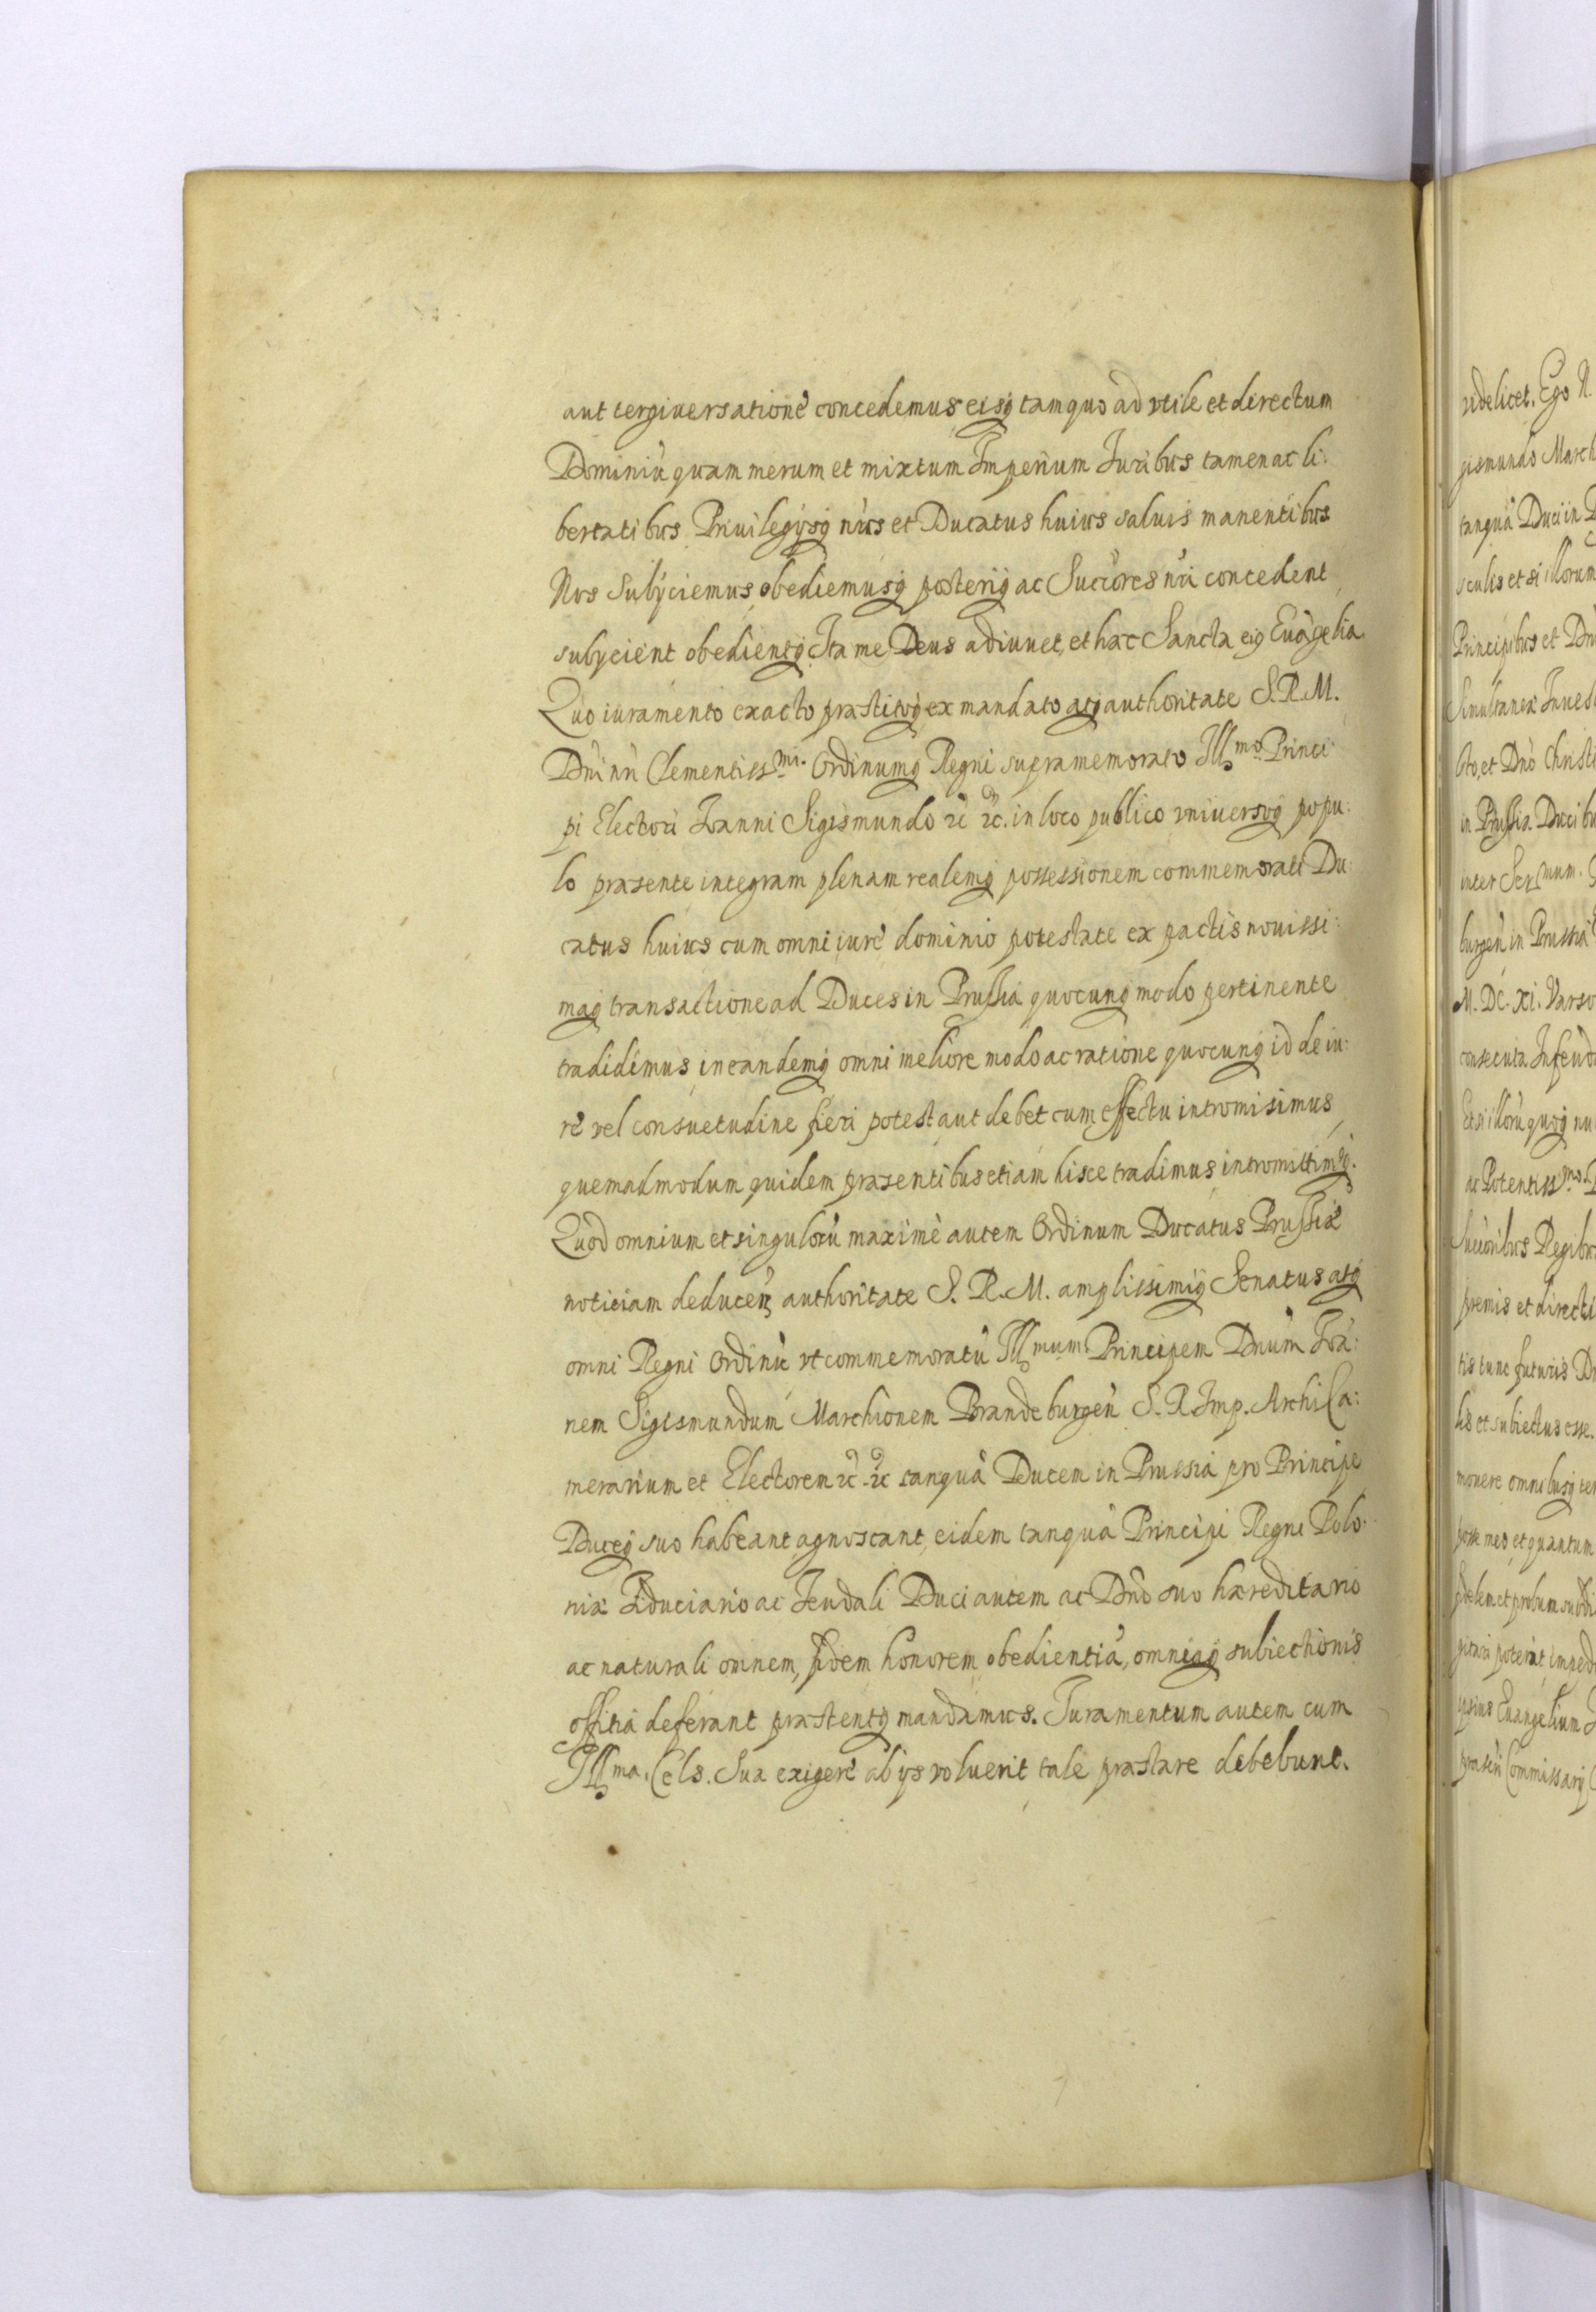 aut tergiuersationè concedemus eisq́ tam quo ad vtile et directum
Dominiũ quam merum et mixtum Imperium Iuribus tamen ac li:
bertatibus Priuilegijsq́ nris et Ducatus huius saluis manentibus
Nos Subijciemus obediemusq́ posteriq́ ac Succores nri concedent
subijcient obedientq́ Ita me Deus adiuuet, et hæc Sancta eiq Euãgelia.
Quo iuramento exacto præstitoq́ ex mandato atq́ authoritate S. R. M.
Dni nri Clementissmi. Ordinumq́ Regni supramemorato Illmo Princi:
pi Electori Ioanni Sigismundo ꝛc ꝛc. in loco publico vniuersoq́ popu:
lo præsente integram plenam realemq́ possessionem commemorati Du:
catus huius cum omni iurè dominio potestate ex pactis nouissi:
maq́ transactione ad Duces in Prussia quocunq́ modo pertinente
tradidimus, in eandemq́ omni meliore modo ac ratione quocunq́ id de iu:
rè vel consuetudine fieri potest aut debet cum effectu intromisimus,
quemadmodum quidem præsentibus etiam hisce tradimus intromittimq́.
Quod omnium et singulorũ maximè autem Ordinum Ducatus Prussiæ
noticiam deducen authoritate S. R. M. amplissimiq́ Senatus atq́
omni Regni Ordinũ vt commemoratũ Illmum Principem Dnum Ioã:
nem Sigismundum Marchionem Brandeburgen S. R. Imp. ArchiCa:
merarium et Electorem ꝛc ꝛc tanquã Ducem in Prussia pro Principe
Duceq́ suo habeant agnoscant, eidem tanquã Principi Regni Polo:
niæ Fiduciario ac Feudali Duci autem ac Dno suo hæreditario
ac naturali omnem, fidem honorem obedientiã, omniaq́ subiectionis
offitia deferant præstentq́ mandamus. Iuramentum autem cum
Illma. Cels. Sua exigerè ab ijs voluerit tale præstare debebunt.
videlicet. Ego N.
gismundo March
tanquã Duci in P
sculis et si illorum
Principibus et Dn
Simultaneæ Inuest
in Prussia Ducibu
burgen in Prussia
M. DC. XI. Varso
consecuta Infeud
Et si illorũ quoq́ nu
ac Potentissmo.
Succoribus Regibu
premis et directi
tis tunc futuris D
lis et subiectus esse.
mouere omnibusq́ te
posse meo et quantum
fidelem et probum subdi
gitari poterit impedi
ipsius Euangelium
præsen Commissarij